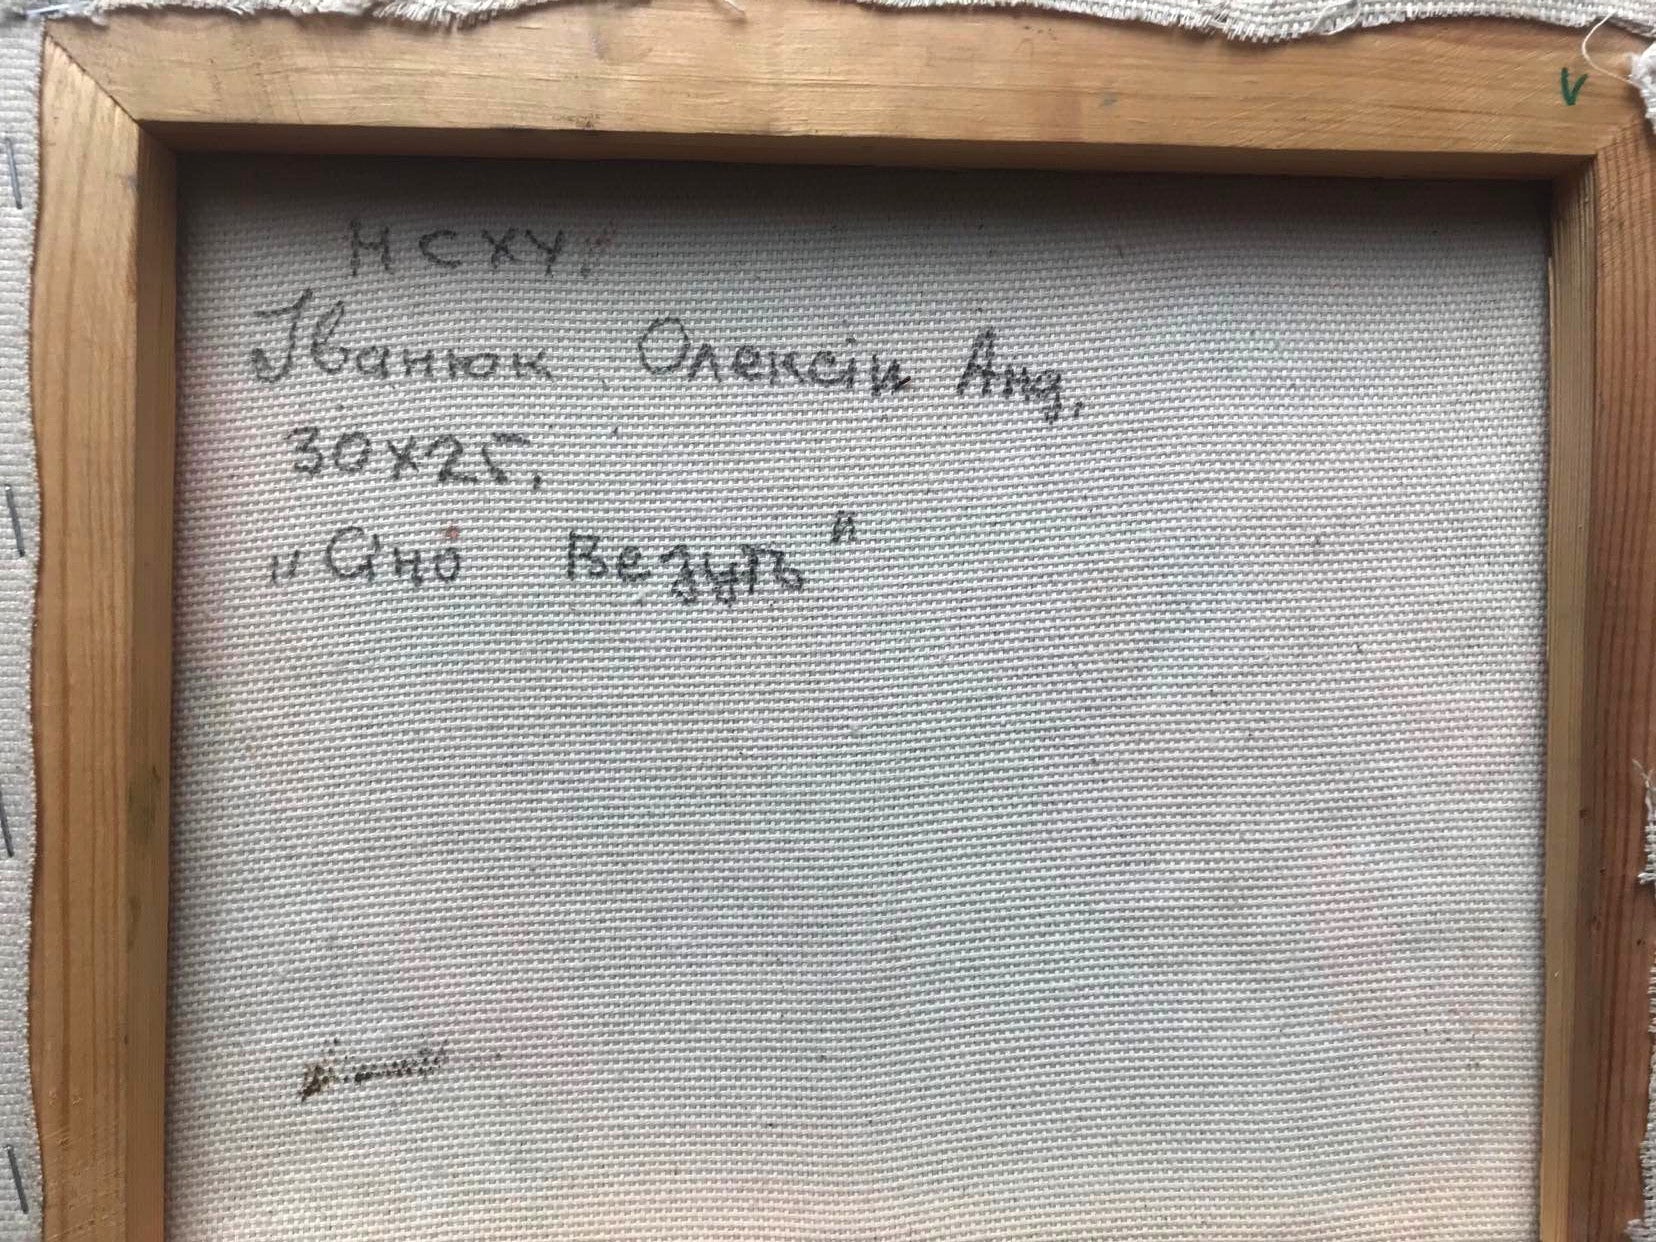 НСХУ.
Іванюк Олексій Анд.
30х25.
„Сіно Везуть"